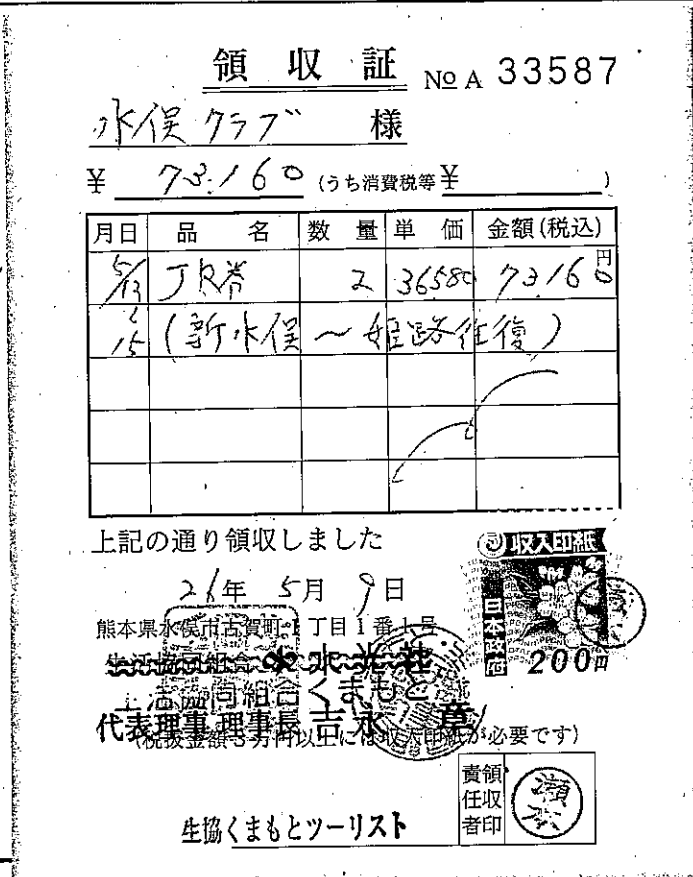 領 収 証 No A 33587
水俣クラブ 様
¥ 73,160 (うち消費税等¥ )
月日 品 名 数 量 単 価 金額(税込)
5/13 JR券 2 36580 73160円
15 (新水俣～姫路往復)
上記の通り領収しました
収入印紙
26年 5月 9日
日本政府
200円
熊本県水俣市古賀町1丁目1番1号
生活協同組合 水光社
生活協同組合くまもと
代表理事 理事長 吉永 章
(税抜金額5万円以上には収入印紙が必要です)
領収責任者印
生協くまもとツーリスト